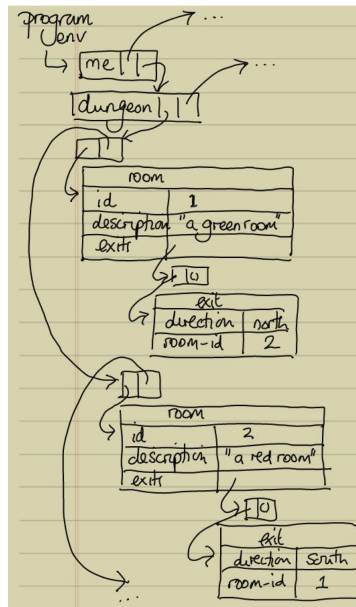 program
env
me
...
dungeon
...
room
id 1
description "a green room"
exits
0
exit
direction north
room-id 2
room
id 2
description "a red room"
exits
0
exit
direction South
room-id 1
...